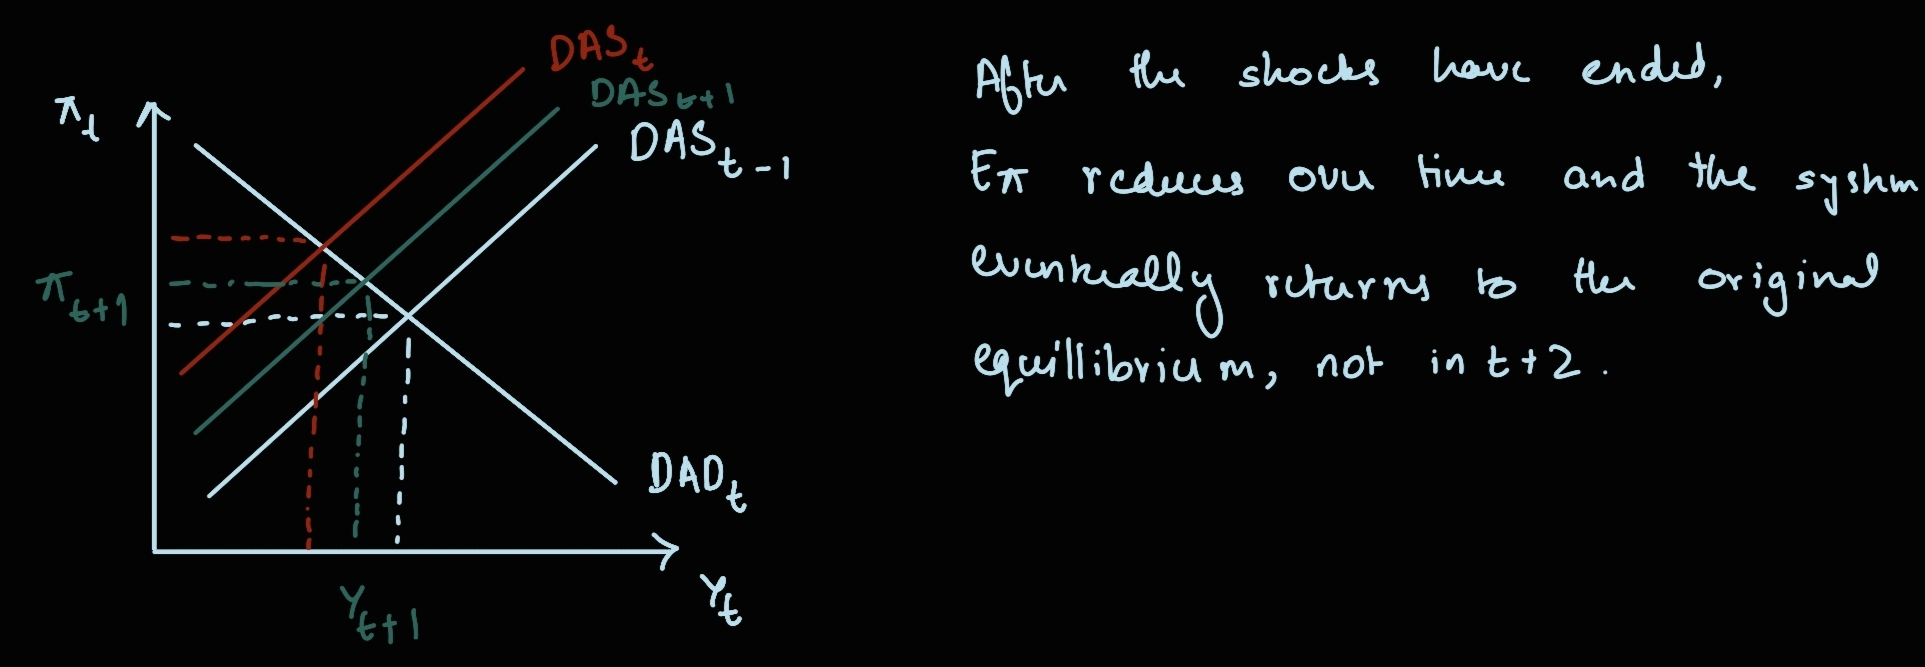 DAS_t
DAS_{t+1}
π_t
DAS_{t-1}
π_{t+1}
DAD_t
Y_t
Y_{t+1}
After the shocks have ended,
Eπ reduces over time and the system
eventually returns to the original
equillibrium, not in t+2.